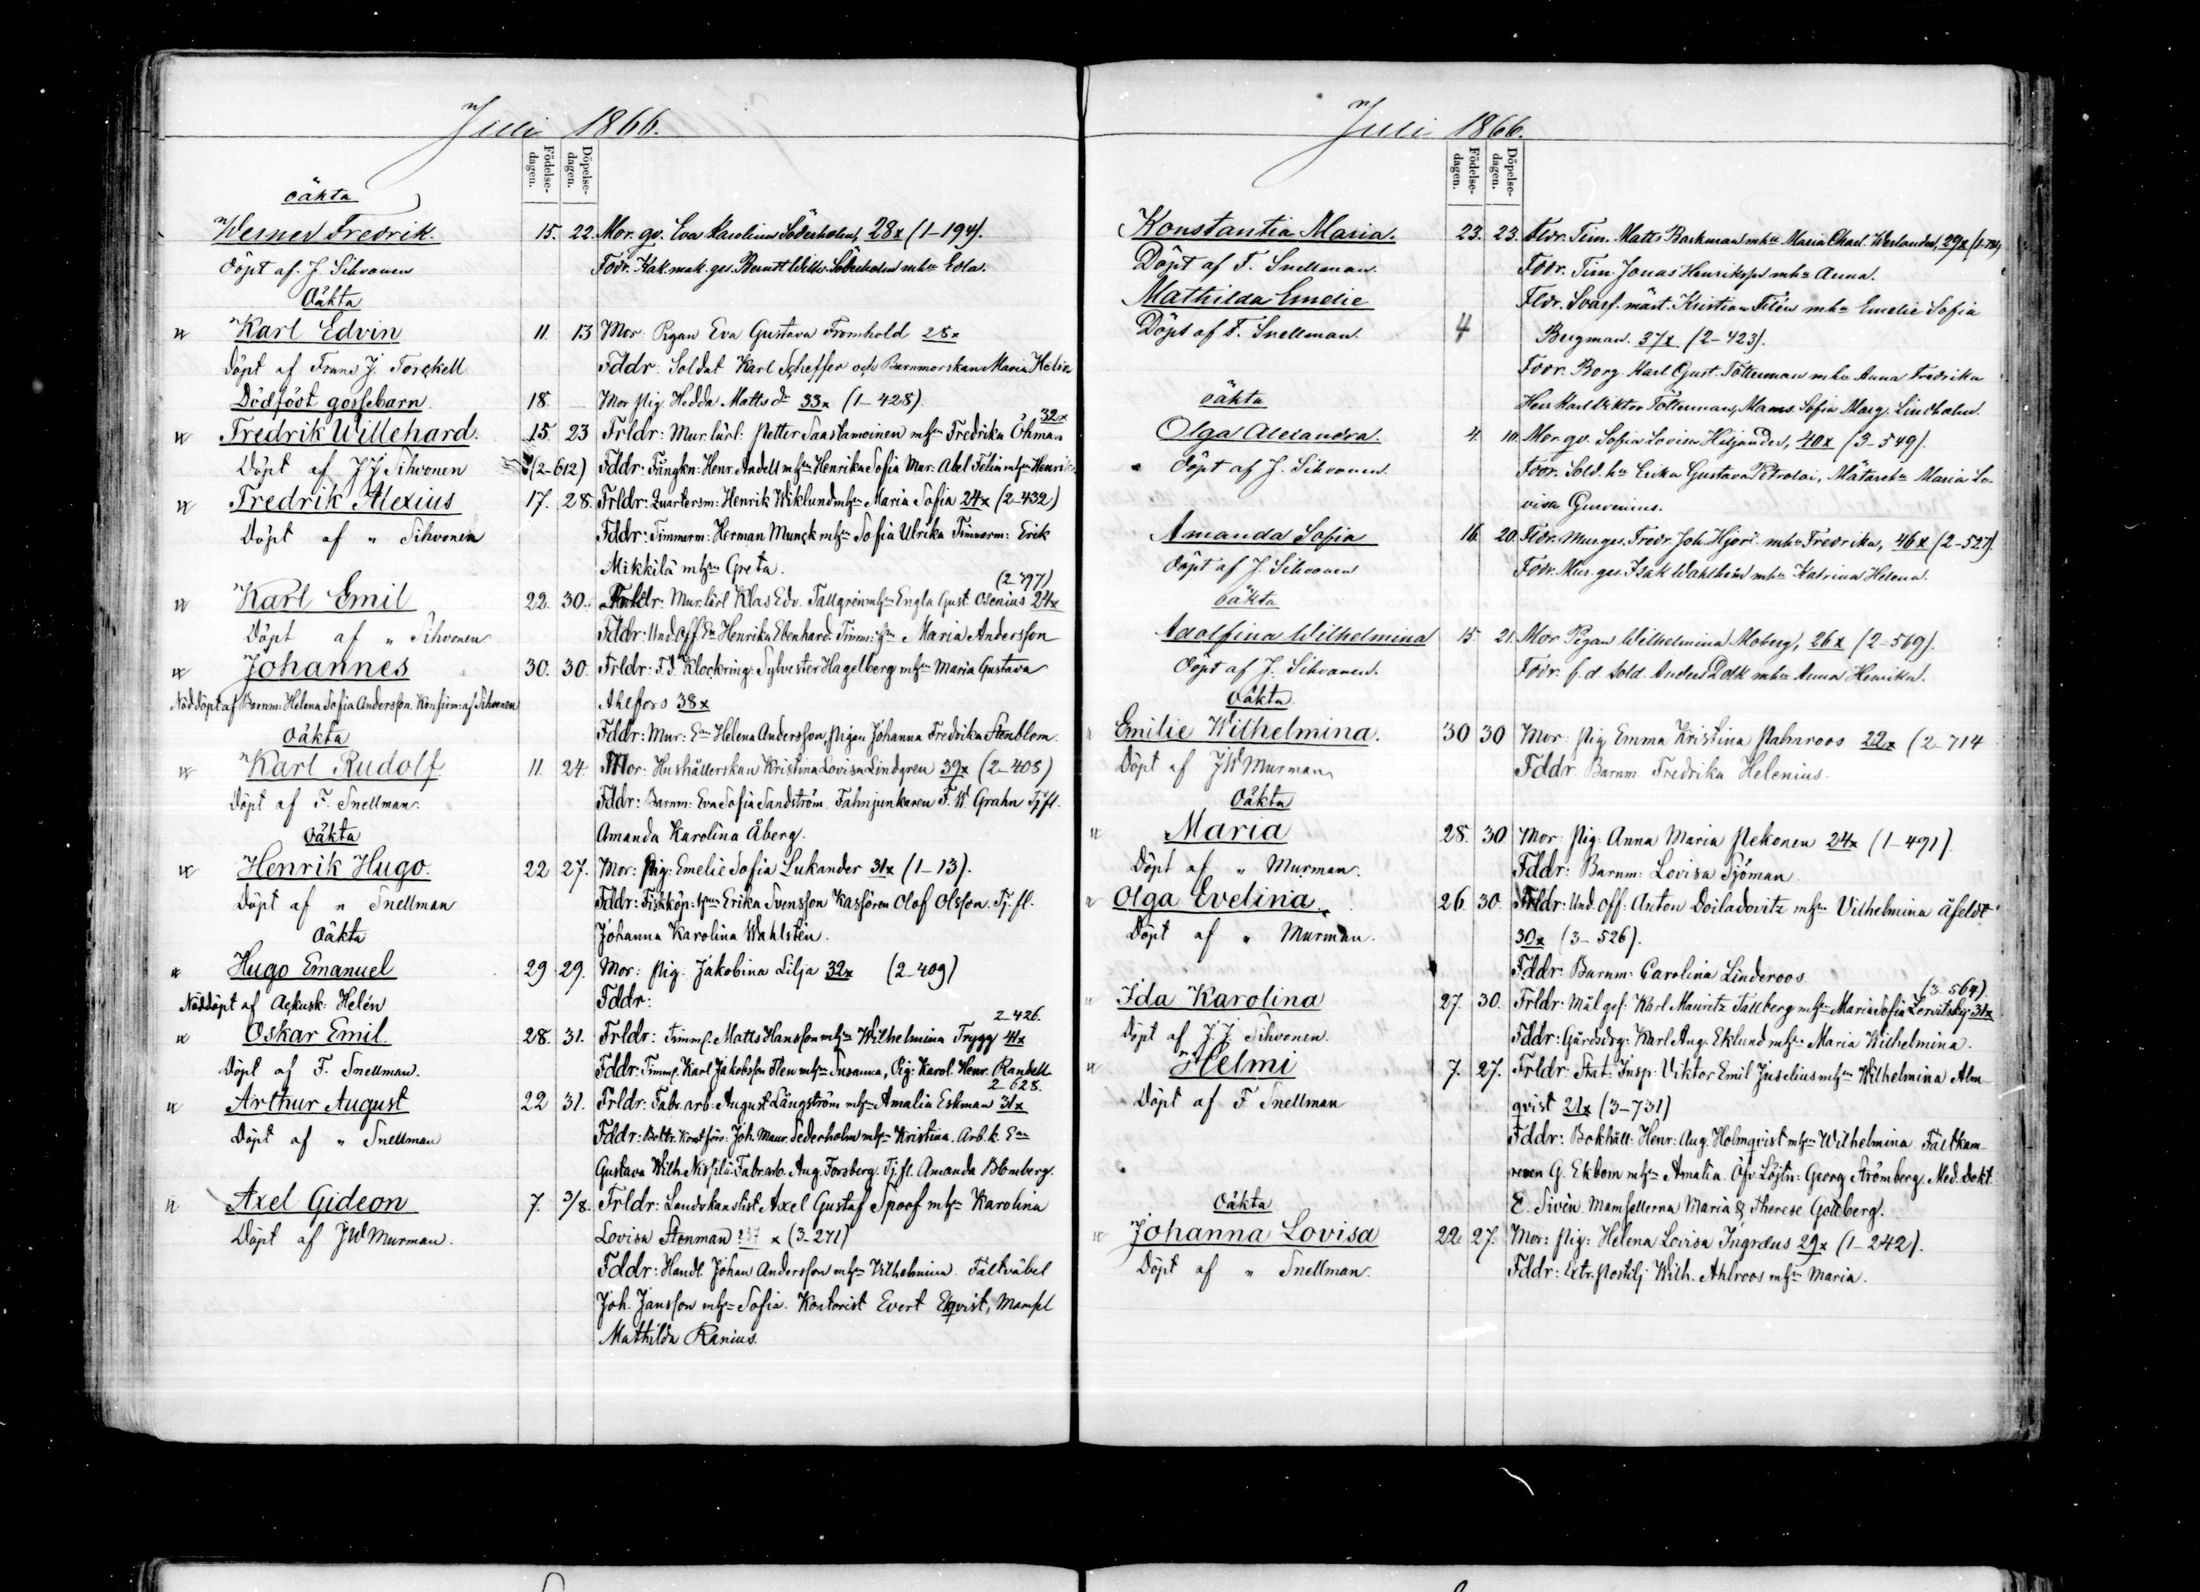 Juli 1866.
Födelse-dagen. Döpelse-dagen.
oäkta
Werner Fredrik. 15. 22. Mor. gv. Eva Karolina Söderholm, 28x (1-194).
Döpt af. J. Sihvonen Fddr. Kak.mak. ges. Berndt Wilh. Söderholm mhu Edla.
Oäkta
Karl Edvin 11. 13 Mor: Pigan Eva Gustava Fromhold 28x
Döpt af Frans J. Torckell Fddr: Soldat Karl Scheffer och Barnmorskan Maria Helin
Dödfödt gossebarn 18. Mor Pig. Hedda Mattsdr 33x (1-428).
32x
Fredrik Willehard. 15. 23 Frldr: Mur. lärl: Petter Saastamoinen mhu Fredrika Öhman
Döpt af J J Sihvonen (2-612) Fddr: Fångkn: Henr. Andell mhu Henrika Sofia Mur: Abel Felin mhu Henrik
Fredrik Alexius 17. 28. Frldr: Quartersm: Henrik Wiklund mhu Maria Sofia 24x (2-432)
Döpt af " Sihvonen Fddr: Timmerm: Herman Munck mhu Sofia Ulrika Timmerm: Erik
Mikkilä mhu Greta.
(2-797)
Karl Emil 22. 30. Frldr: Mur. lärl Klas Edv. Tallgren mhu Engla Gust. Osenius 24x
Döpt af " Sihvonen Fddr: Und Off. En Henrika Ebenhard. Timm: hu Maria Andersson
Johannes 30. 30. Frldr: F.d. Klockring: Sylvester Hagelberg mhu Maria Gustava
Nöddöpt af Barnm: Helena Sofia Andersson. Konfirm: af Sihvonen Ahlfors 38x
Fddr: Mur: En Helena Andersson, Pigan Johanna Fredrika Stenblom.
Oäkta
Karl Rudolf 11. 24. Mor: Hushållerskan Kristina Lovisa Lindgren 39x (2-408)
Döpt af F. Snellman. Fddr: Barnm: Eva Sofia Sandström. Fahnjunkaren F. W. Grahn Tj.fl.
Amanda Karolina Åberg.
Oäkta
Henrik Hugo. 22 27. Mor: Pig: Emelie Sofia Lukander 31x (1-13).
Döpt af " Snellman Fddr: Fiskköp: hun Erika Svensson Kassören Olof Olsson. Tj. fl.
Johanna Karolina Wahlstén.
Oäkta
Hugo Emanuel 29 29. Mor: Pig. Jakobina Lilja 32x (2-409)
Nöddöpt af Ackusk: Helén Fddr:
2-426.
Oskar Emil. 28. 31. Frldr: Timmf. Matts Hansson mhu Wilhelmina Trygg 41x
Döpt af F. Snellman. Fddr: Timmf. Karl Jakobsson Flen mhu Susanna, Pig: Karol. Henr. Randell
2-628.
Arthur August 22 31. Frldr: Fabr. arb. August Långström mhu Amalia Eskman 31x
Döpt af " Snellman Fddr: Joh. Maur. Sederholm mhu Kristina. Arb.k. Enn
Gustava Wilh. Nissilä. Fabr.arb. Aug. Forsberg. Tj. fl. Amanda Blomberg.
Axel Gideon 7. 3/8. Frldr: Landskanslist Axel Gustaf Spoof mhu Karolina
Döpt af J W Murman. Lovisa Stenman x (3-271)
Fddr: Handl. Johan Andersson mhu Vilhelmina. Fältväbel
Joh. Jansson mhu Sofia. Kontorist Evert Eqvist, Mamsl
Mathilda Ranius.
Juli 1866.
Födelse-dagen. Döpelse-dagen.
Konstantia Maria. 23. 23. Fldr. Tim. Matts Backman mhu Maria Charl. Werlander, 29x
Döpt af F. Snellman. Fddr. Tim. Jonas Henriksson mhu Anna.
Mathilda Emelie Fldr. Svarf. mäst. Kristian Filén mhu Emelie Sofia
Döpt af F. Snellman. 4 Bergman. 37x (2-423).
Fddr. Borg. Karl Gust. Tötterman mhu Anna Fredrika
oäkta Herr Karl Viktor Tötterman, Mams. Sofia Marg. Lindholm.
Olga Alexandra. 4. 10. Mor. gv. Sofia Lovisa Hiljander, 40x (3-549).
Döpt af J. Sihvonen. Fddr. Sold. hu Erika Gustava Petrolai, Mätarehu Maria Lo-
visa Gurvenius.
Amanda Sofia 16. 20. Fldr. Mur.ges. Fredr. Joh. Hjort mhu Fredrika, 46x (2-527).
Döpt af J. Sihvonen Fddr. Mur. ges. Isak Wahlström mhu Katrina Helena.
oäkta
Adolfina Wilhelmina 15. 21. Mor Pigan Wilhelmina Moberg, 26x (2-569).
Döpt af J. Sihvonen. Fddr. f. d. Sold. Anders Dolk mhu Anna Henrika.
Oäkta
Emilie Wilhelmina. 30 30 Mor Pig Emma Kristina Palmroos 22x (2-714
Döpt af J W Murman Fddr Barnm Fredrika Helenius.
Oäkta
Maria 28. 30 Mor: Pig: Anna Maria Pekonen 24x (1-491).
Döpt af " Murman. Fddr: Barnm: Lovisa Sjöman.
Olga Evelina. 26. 30. Frldr: Und. Off: Anton Doiladovitz mhu Vilhelmina Åfeldt
Döpt af " Murman. 30x (3-526).
Fddr: Barnm: Carolina Linderoos
(3-564).
Ida Karolina 27. 30. Frldr: Mål. ges. Karl Mauritz Sallberg mhu Maria Sofia Lervitsky 31x
Döpt af J. J. Sihvonen. Fddr: Gårdsdrg: Karl Aug. Eklund mhu Maria Wilhelmina.
Helmi 7. 27. Frldr: Stat: Insp: Viktor Emil Juselius mhu Wilhelmina Alm-
Döpt af F Snellman qvist 21x (3-731)
Fddr: Bokhåll: Henr: Aug. Holmqvist mhu Wilhelmina. Fältkam-
reren G. Ekbom mhu Amalia. Öfv. Löjtn: Georg Strömberg. Med. Dokt.
E. Sivén. Mamsellerna Maria & Therese Gottberg.
Oäkta
Johanna Lovisa 22. 27. Mor: Pig: Helena Lovisa Ingraeus 29x (1-242).
Döpt af " Snellman. Fddr: Extr. Postilj: Wilh. Ahlroos mhu Maria.